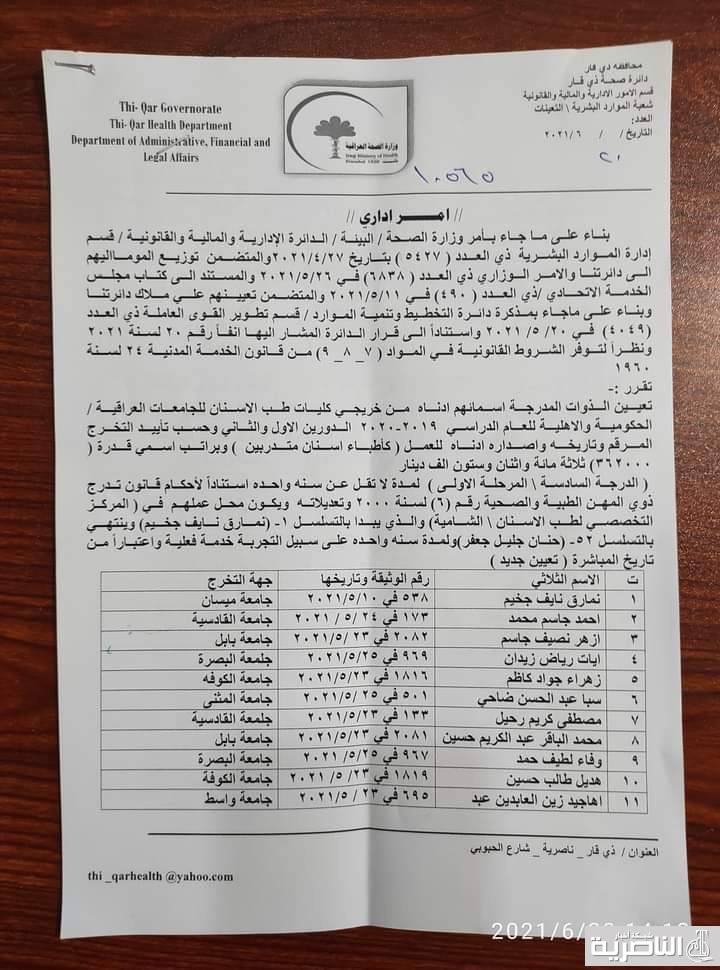 محافظة ذي قار
دائرة صحة ذي قار
قسم الامور الادارية والمالية والقانونية
شعبة الموارد البشرية \ التعينات
العدد:
التاريخ / / ٢٠٢١/٦
٢٠
١٠٥٦٥
Thi- Qar Governorate
Thi- Qar Health Department
Department of Administrative, Financial and
Legal Affairs
وزارة الصحة العراقية
Iraqi Ministry of Health
// امر اداري //
بناء على ما جاء بأمر وزارة الصحة / البيئة / الدائرة الإدارية والمالية والقانونية / قسم
إدارة الموارد البشرية ذي العدد ( ٥٤٢٧ ) بتاريخ ٢٠٢١/٤/٢٧ والمتضمن توزيع الموماليهم
الى دائرتنا والامر الوزاري ذي العدد ( ٦٨٣٨) في ٢٠٢١/٥/٢٦ والمستند الى كتاب مجلس
الخدمة الاتحادي /ذي العدد ( ٤٩٠) في ٢٠٢١/٥/١١ والمتضمن تعيينهم علي ملاك دائرتنا
وبناء على ماجاء بمذكرة دائرة التخطيط وتنمية الموارد / قسم تطوير القوى العاملة ذي العدد
(٤٠٤٩) في ٢٠ /٥ /٢٠٢١ واستناداً الى قرار الدائرة المشار اليها انفاً رقم ٢٠ لسنة ٢٠٢١
ونظراً لتوفر الشروط القانونية في المواد ( ٧_ ٨_ ٩) من قانون الخدمة المدنية ٢٤ لسنة
١٩٦٠
تقرر :-
تعيين الذوات المدرجة اسمائهم ادناه من خريجي كليات طب الاسنان للجامعات العراقية /
الحكومية والاهلية للعام الدراسي ٢٠١٩-٢٠٢٠ الدورين الاول والثاني وحسب تأييد التخرج
المرقم وتاريخه واصداره ادناه للعمل ( كأطباء اسنان متدربين ) وبراتب اسمي قدرة (
٣٦٢٠٠٠) ثلاثة مائة واثنان وستون الف دينار
( الدرجة السادسة \ المرحلة الاولى ) لمدة لا تقل عن سنه واحده استناداً لأحكام قانون تدرج
ذوي المهن الطبية والصحية رقم (٦) لسنة ٢٠٠٠ وتعديلاته ويكون محل عملهم في ( المركز
التخصصي لطب الاسنان \ الشامية) والذي يبدا بالتسلسل ١- (نمارق نايف جخيم) وينتهي
بالتسلسل ٥٢- (حنان جليل جعفر) ولمدة سنه واحده على سبيل التجربة خدمة فعلية واعتباراً من
تاريخ المباشرة ( تعيين جديد )
ت الاسم الثلاثي رقم الوثيقة وتاريخها جهة التخرج
١ نمارق نايف جخيم ٥٣٨ في ٢٠٢١/٥/١٠ جامعة ميسان
٢ احمد جاسم محمد ١٧٣ في ٢٤ /٥ / ٢٠٢١ جامعة القادسية
٣ ازهر نصيف جاسم ٢٠٨٢ في ٢٣ /٥/ ٢٠٢١ جامعة بابل
٤ ايات رياض زيدان ٩٦٩ في ٢٠٢١/٥/٢٥ جلمعة البصرة
٥ زهراء جواد كاظم ١٨١٦ في ٢٠٢١/٥/٢٣ جامعة الكوفه
٦ سبا عبد الحسن ضاحي ٥٠١ في ٢٠٢١/٥/٢٥ جامعة المثنى
٧ مصطفى كريم رحيل ١٣٣ في ٢٠٢١/٥/٢٣ جلمعة القادسية
٨ محمد الباقر عبد الكريم حسين ٢٠٨١ في ٢٠٢١/٥/٢٣ جامعة بابل
٩ وفاء لطيف حمد ٩٦٧ في ٢٠٢١/٥/٢٥ جامعة البصرة
١٠ هديل طالب حسين ١٨١٩ في ٢٠٢١/٥/٢٣ جامعة الكوفة
١١ اهاجيد زين العابدين عبد ٦٩٥ في ٢٣ / ٥/ ٢٠٢١ جامعة واسط
العنوان / ذي قار _ ناصرية _ شارع الحبوبي
thi _qarhealth @yahoo.com
شبكة أخبار
الناصرية